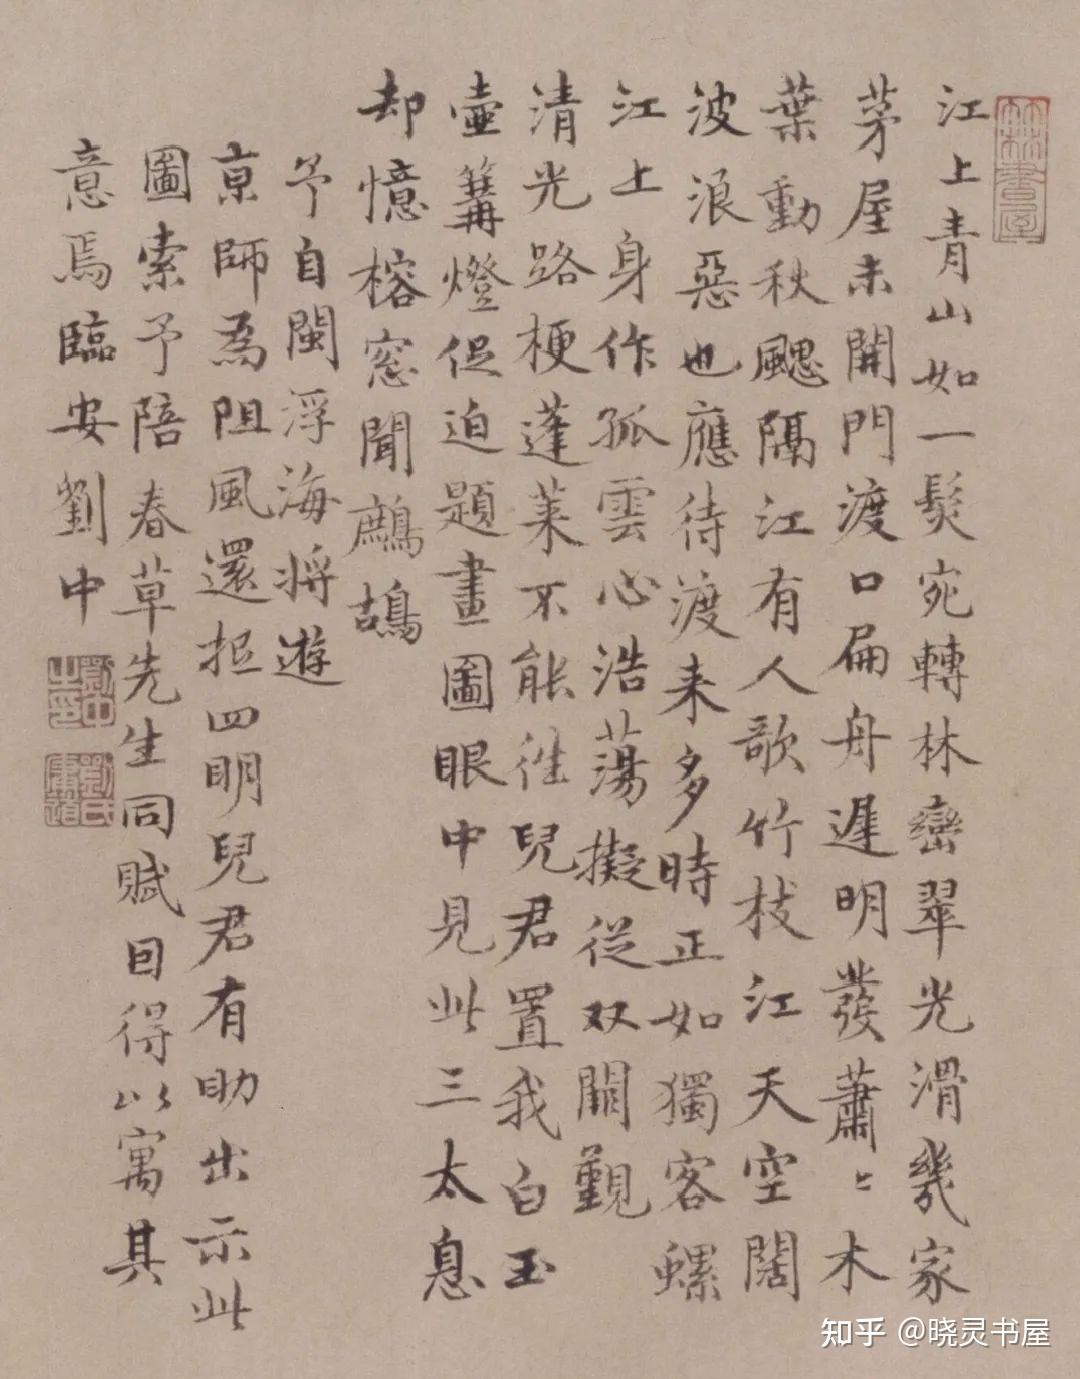 江上青山如一髮宛轉林巒翠光滑幾家
茅屋未開門渡口扁舟遲明發蕭〻木
葉動秋颸隔江有人歌竹枝江天空闊
波浪惡也應待渡来多時正如獨客螺
江上身作孤雲心浩蕩擬從双闕觀
清光路梗蓬莱不能徃兒君置我白玉
壷篝燈促迫題畫圖眼中見此三太息
却憶榕窓聞鷓鴣
予自閩浮海将遊
京師為阻風還抵四明兒君有助出示此
圖索予陪春草先生同賦因得以寓其
意焉臨安劉中
劉中之印
林書屋
知乎 @晓灵书屋